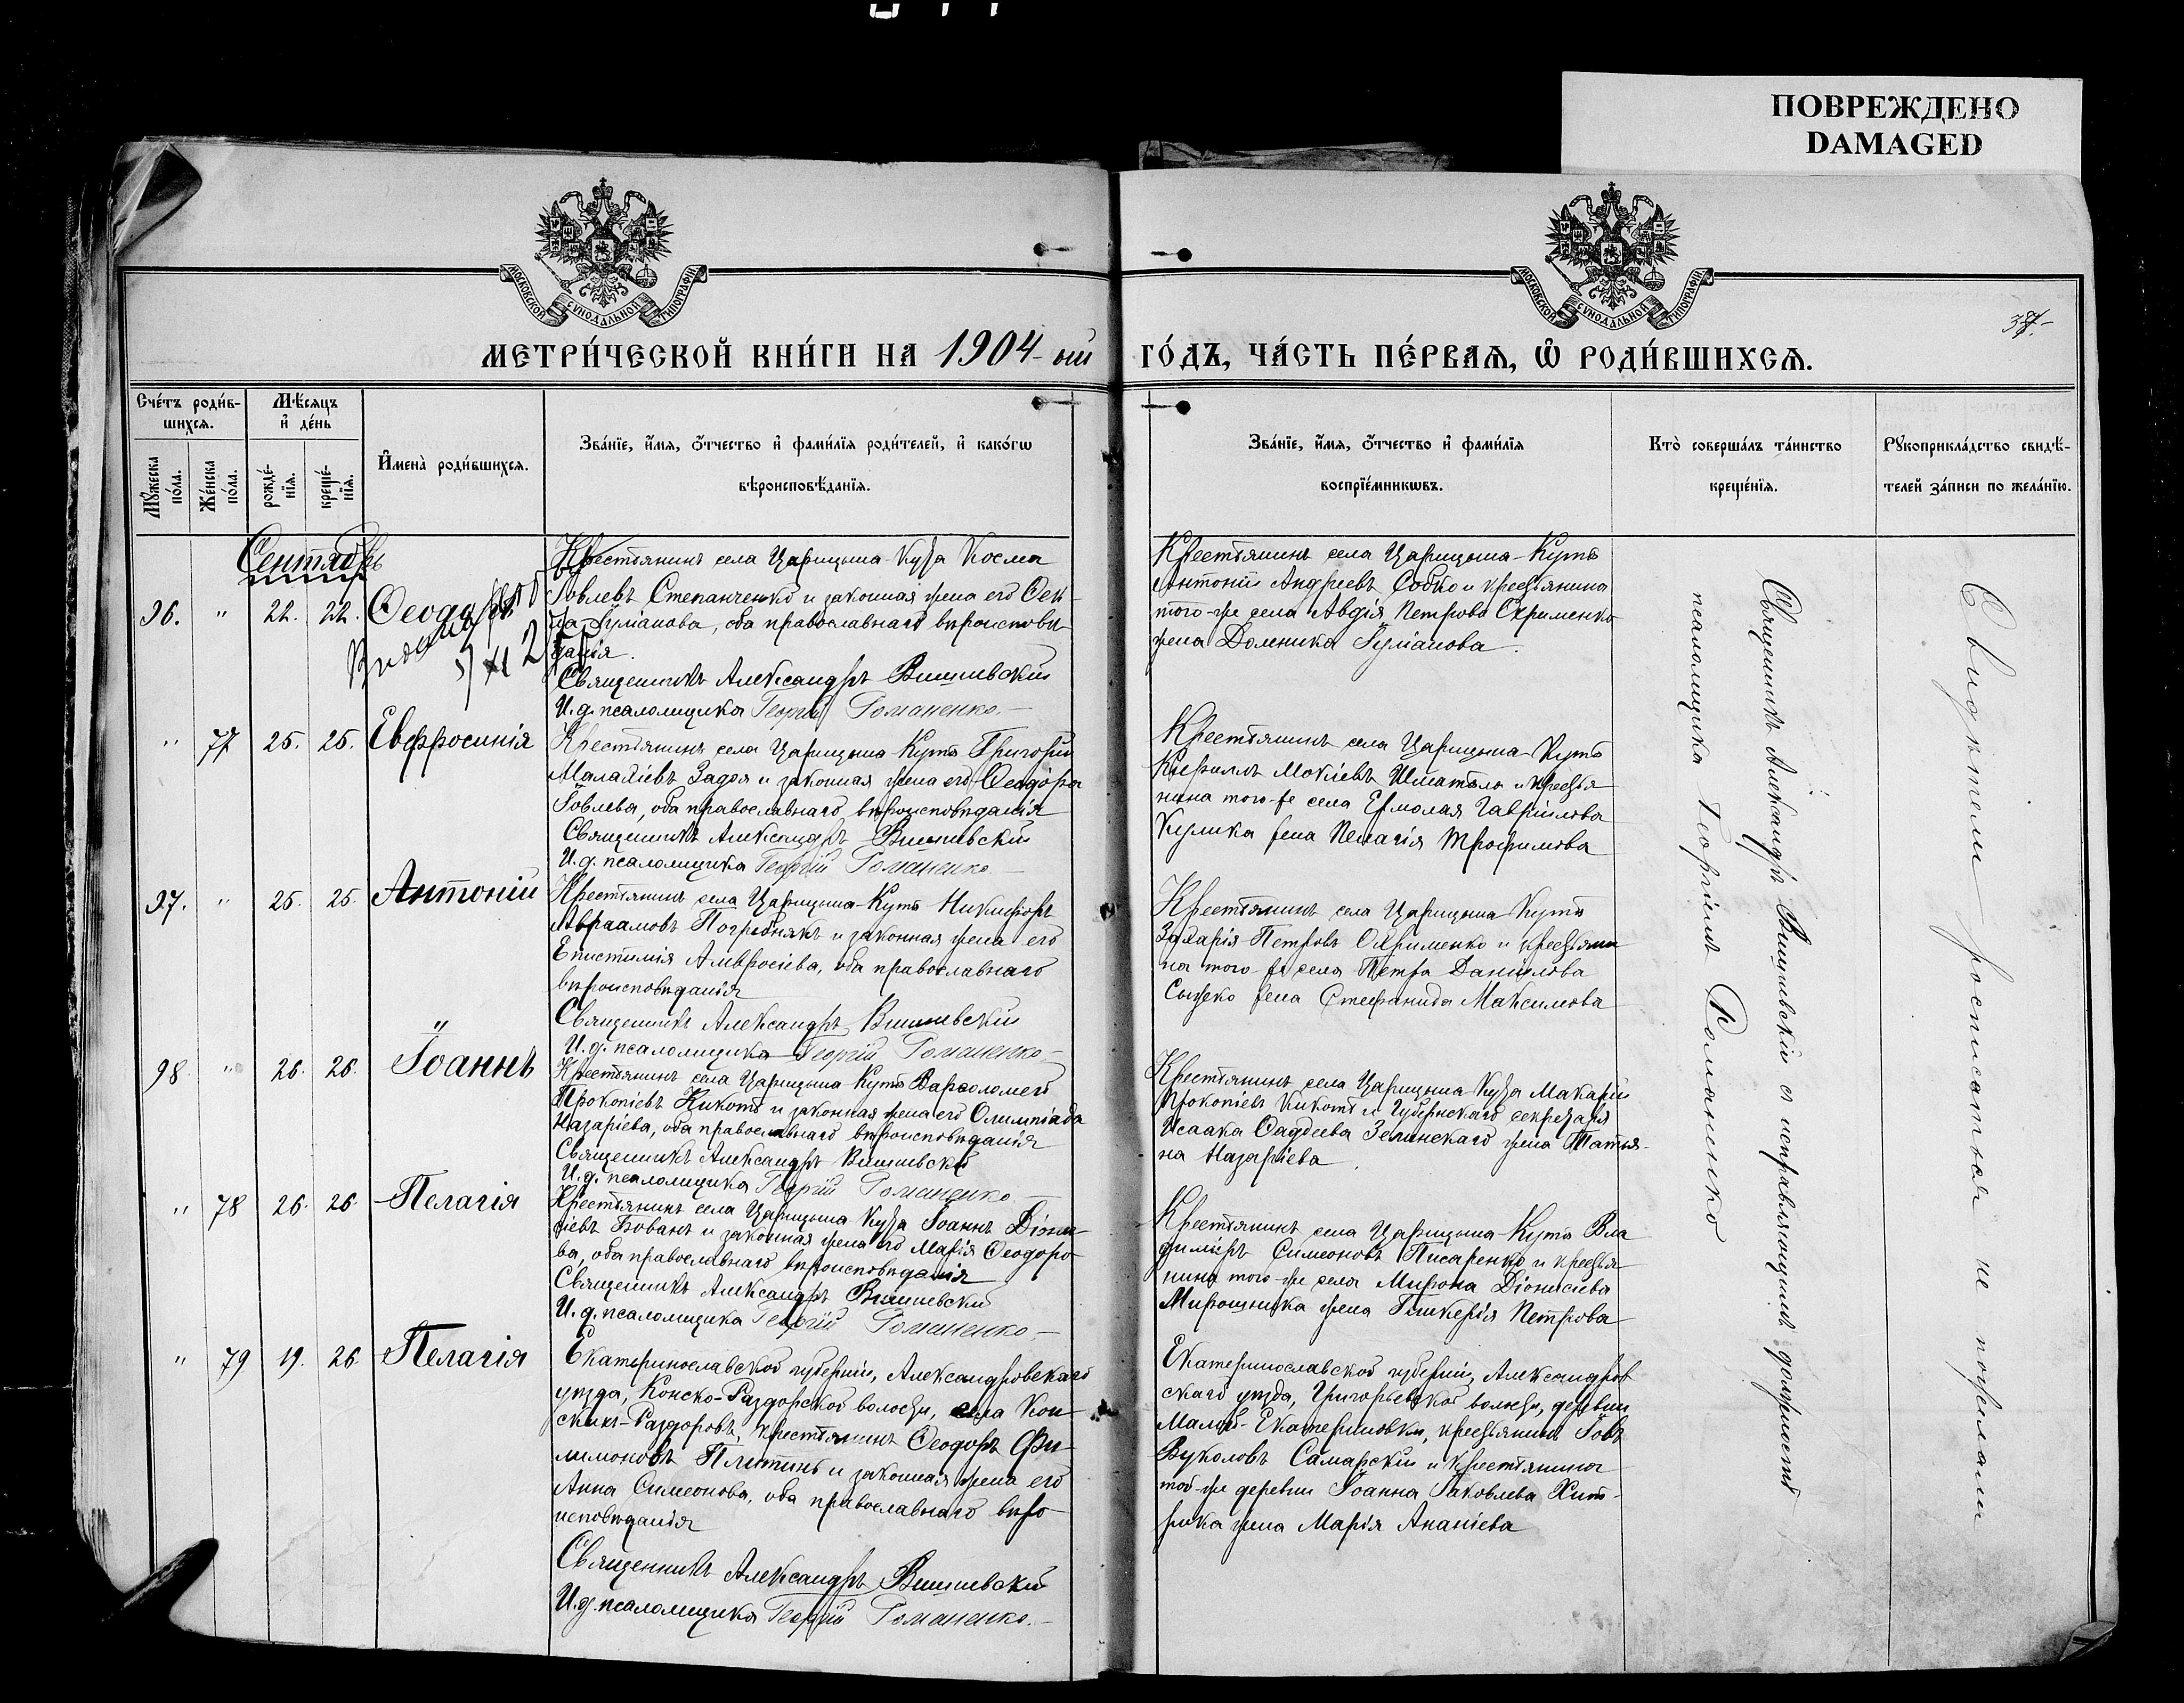 ПОВРЕЖДЕНО
DAMAGED
МОСКОВСКОЙ СѴНОДАЛЬНОЙ ТИПОГРАФІИ
МОСКОВСКОЙ СѴНОДАЛЬНОЙ ТИПОГРАФІИ
МЕТРИ́ЧЕСКОЙ КНИ́ГИ НА 1904-ый
ГО́ДЪ, ЧА́СТЬ ПЕ́РВАѦ, Ѽ РОДИ́ВШИХСѦ.
Сче́тъ роди́в-
шихсѧ.
Мꙋ́жеска
по́ла.
Же́нска
по́ла.
Мѣ́сѧцъ
и҆ де́нь
рожде́-
нїѧ.
креще́-
нїѧ.
И҆мена̀ роди́вшихсѧ.
Зва́нїе, и҆́мѧ, ѻ҆́тчество и҆ фами́лїѧ роди́телей, и҆ како́гѡ
вѣроисповѣ́данїѧ.
Зва́нїе, и҆́мѧ, ѻ҆́тчество и҆ фами́лїѧ
воспрїе́мникѡвъ.
Кто̀ соверша́лъ та́инство
креще́нїѧ.
Рꙋкоприкла́дство свидѣ́-
телей за́писи по жела́нїю.
Сентябрь
96. " 22. 22.
Крестьянинъ села Царицына-Кута Косма
Іовлевъ Степанченко и законная жена его Ѳек-
ла Гуріанова, оба православнаго вѣроисповѣ-
данія.
Священникъ Александръ Вишневскій
И.д. псаломщика Георгій Романенко.
Крестьянинъ села Царицына-Кута
Антоній Андреевъ Собко и крестьянина
того-же села Авдія Петрова Охрименко
жена Домника Гуріанова.
" 77 25. 25. Евфросинія
Крестьянинъ села Царицына-Кута Григорій
Малахіевъ Задоя и законная жена его Ѳеодора
Іовлева, оба православнаго вѣроисповѣданія
Священникъ Александръ Вишневскій
И.д. псаломщика Георгій Романенко
Крестьянинъ села Царицына-Кута
Кириллъ Мокіевъ и крестья
нина того-же села Ермолая Гавріилова
Кулика жена Пелагія Трофимова
97. " 25. 25. Антоній
Крестьянинъ села Царицына-Кута Никифоръ
Авраамовъ Погребнякъ и законная жена его
Епистимія Амвросіева, оба православнаго
вѣроисповѣданія
Священникъ Александръ Вишневскій
И.д. псаломщика Георгій Романенко
Крестьянинъ села Царицына Кута
Захарія Петровъ Охрименко и крестьяни
на того-же села Петра Даніилова
жена Стефанида Максимова
98. " 26. 26. Іоаннъ
Крестьянинъ села Царицына-Кута Варѳоломей
Прокопіевъ Кикоть и законная жена его Олимпіада
Назаріева, оба православнаго вѣроисповѣданія
Священникъ Александръ Вишневскій
И.д. псаломщика Георгій Романенко
Крестьянинъ села Царицына-Кута Макарій
Прокопіевъ Кикоть и Губернскаго секретаря
Исаака Ѳаддеева Зелинскаго жена Татья-
на Назаріева.
" 78 26. 26. Пелагія
Крестьянинъ села Царицына Кута Іоаннъ Діони-
сіевъ Бованъ и законная жена его Марія Ѳеодоро-
ва, оба православнаго вѣроисповѣданія
Священникъ Александръ Вишневскій
И.д. псаломщика Георгій Романенко
Крестьянинъ села Царицына-Кута Вла
диміръ Симеоновъ Писаренко и крестья
нина того-же села Мирона Діонисіева
Мирошника жена Гликерія Петрова
" 79 19. 26. Пелагія
Екатеринославской губерніи, Александровскаго
уѣзда, Конско-Раздорской волости, села Кон-
скихъ-Раздоровъ, крестьянинъ Ѳеодоръ Фи-
лимоновъ и законная жена его
Анна Симеонова, оба православнаго вѣро-
исповѣданія
Священникъ Александръ Вишневскій
И.д. псаломщика Георгій Романенко.
Екатеринославской губерніи, Александров
скаго уѣзда, Григорьевской волости, деревни
Малой-Екатериновки, крестьянинъ Іовъ
Вуколовъ Самарскій и крестьянина
той-же деревни Іоанна Іаковлева Хит-
рика жена Марія Ананіева
Священникъ Александръ Вишневскій съ исправляющимъ должность
псаломщика Георгіемъ Романенко
Свидѣтели росписаться не пожелали